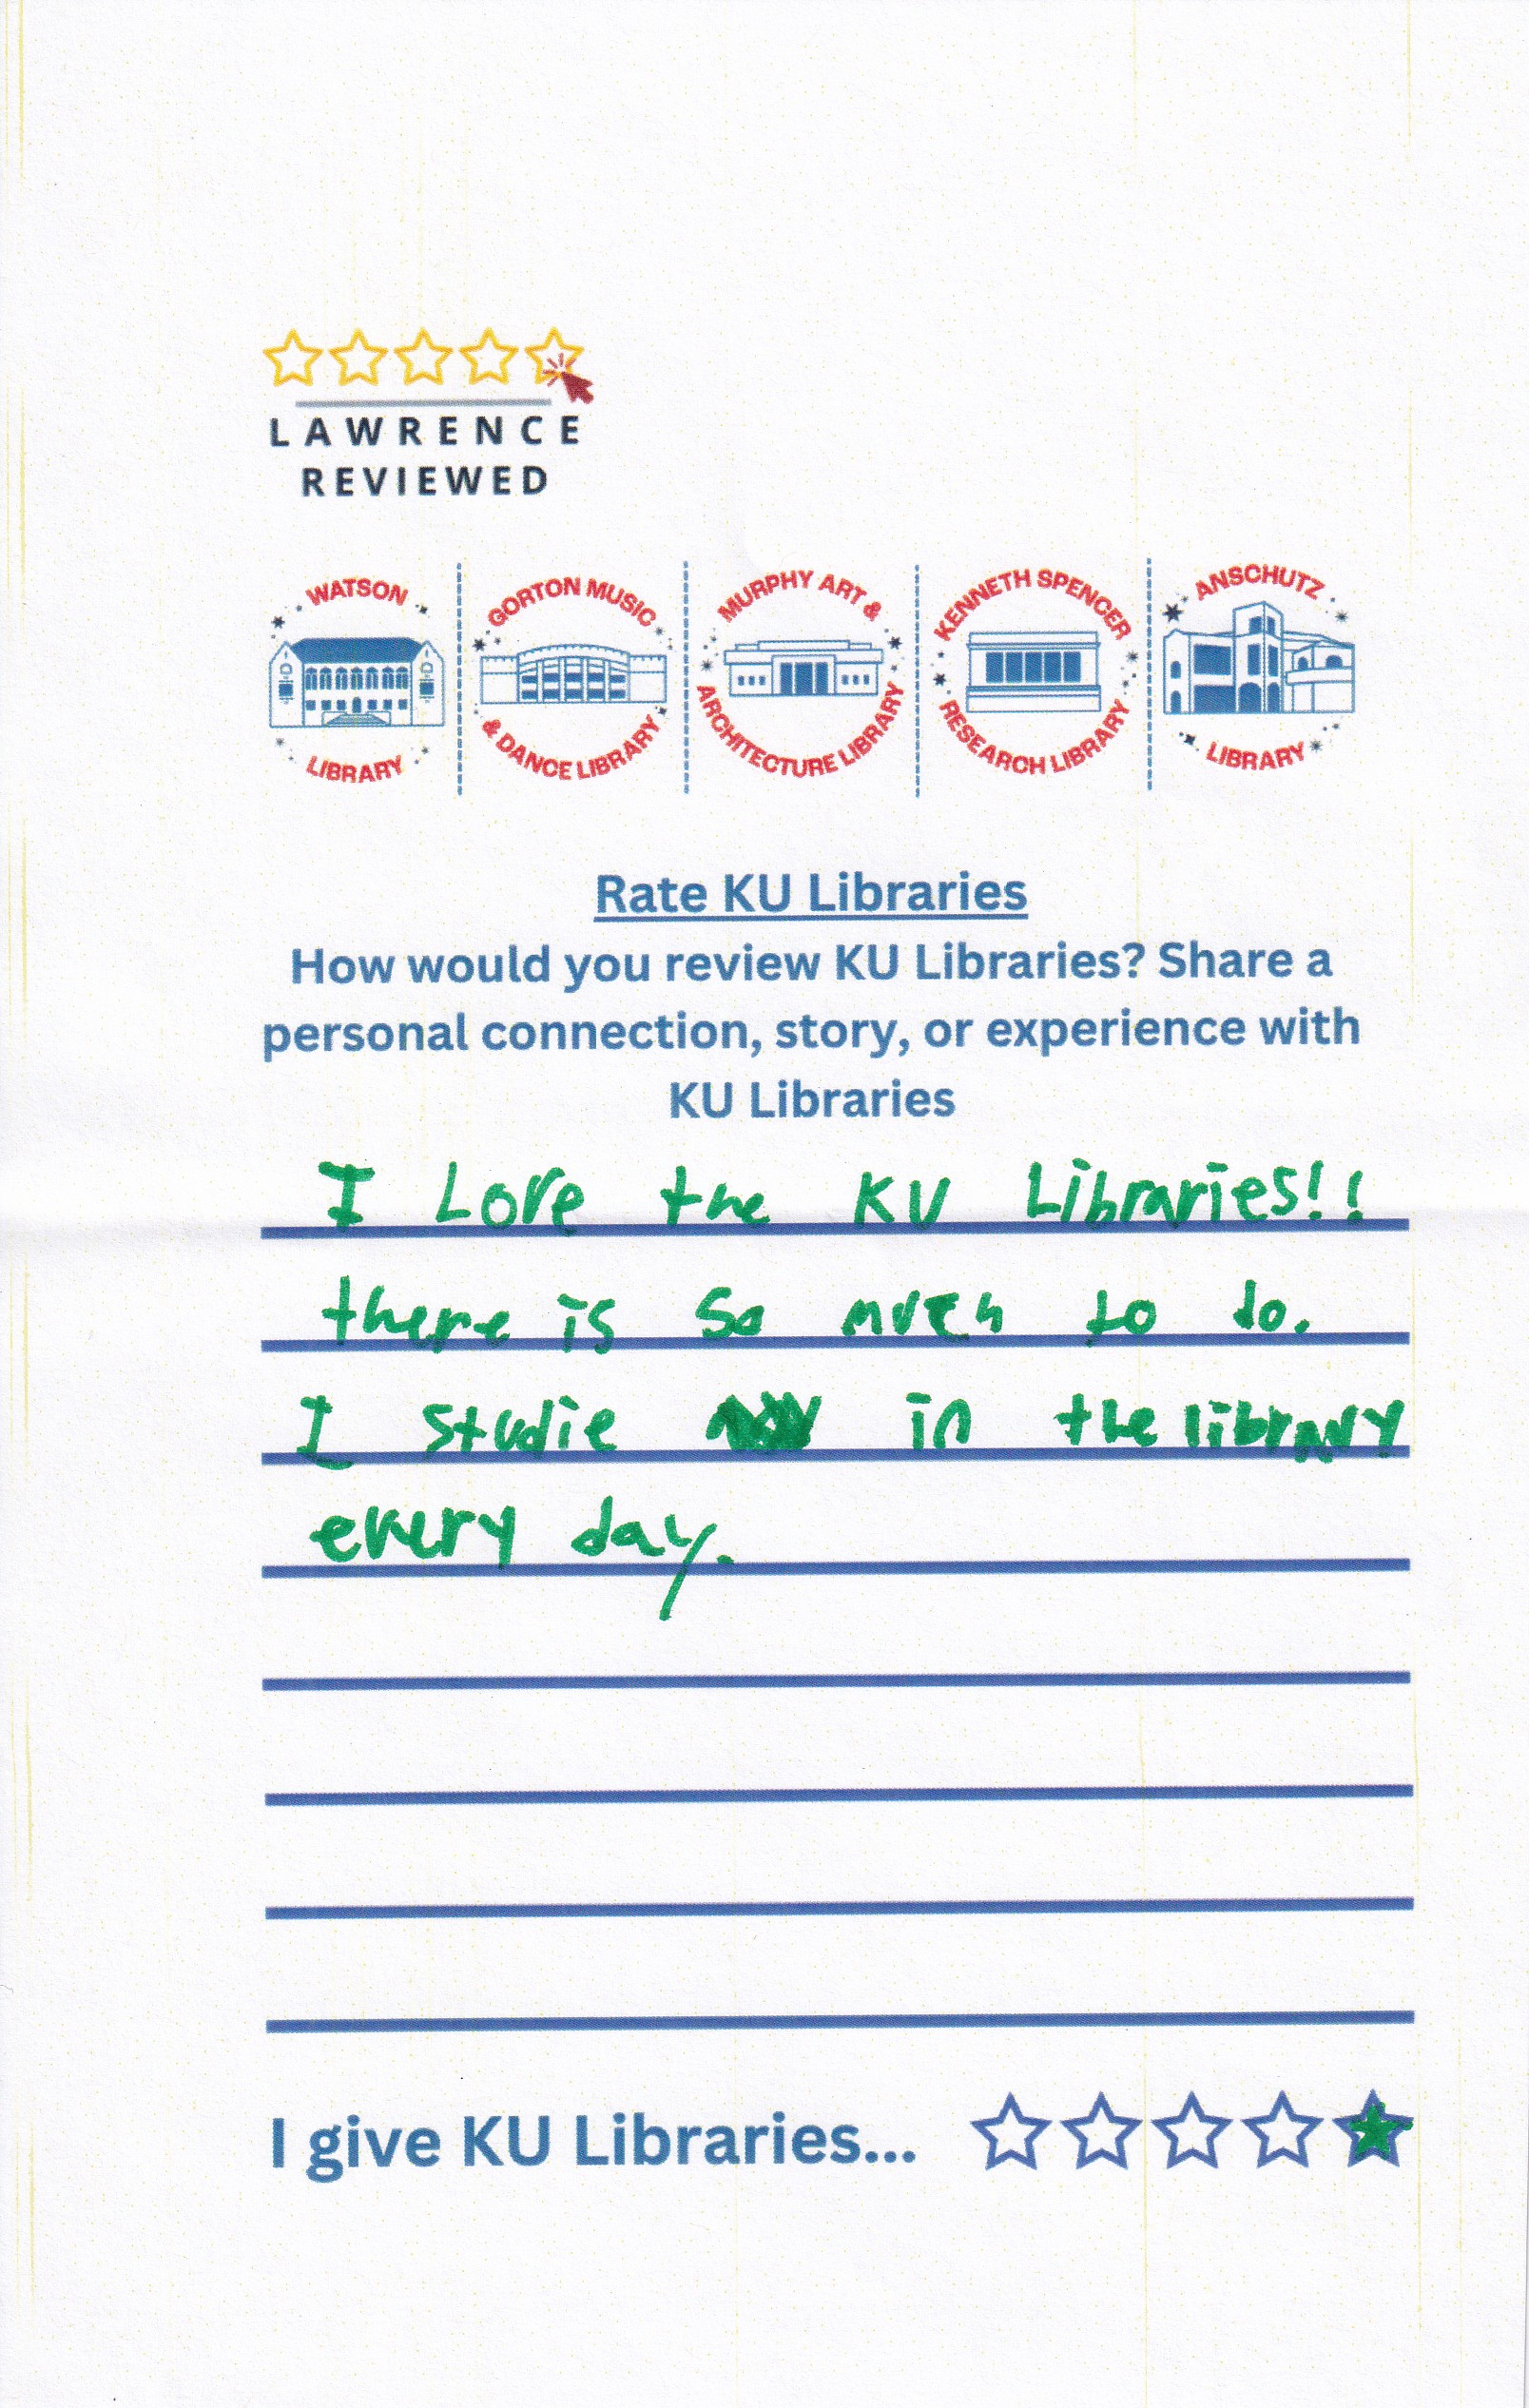 LAWRENCE
REVIEWED
WATSON
LIBRARY
GORTON MUSIC
& DANCE LIBRARY
MURPHY ART &
ARCHITECTURE LIBRARY
KENNETH SPENCER
RESEARCH LIBRARY
ANSCHUTZ
LIBRARY
Rate KU Libraries
How would you review KU Libraries? Share a
personal connection, story, or experience with
KU Libraries
I Love the KU Libraries!!
there is so much to do.
I studie in the library
every day.
I give KU Libraries...